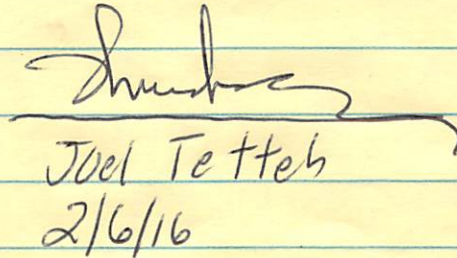 Joel Tetteh
2/6/16